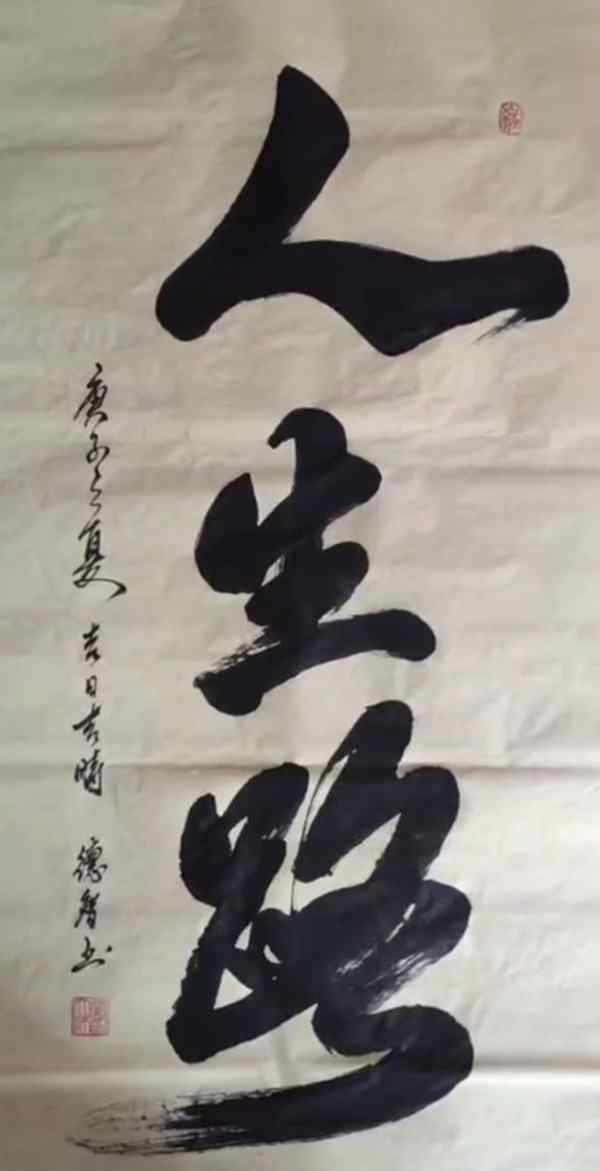 人生路
庚子之夏 吉日吉時 德智书